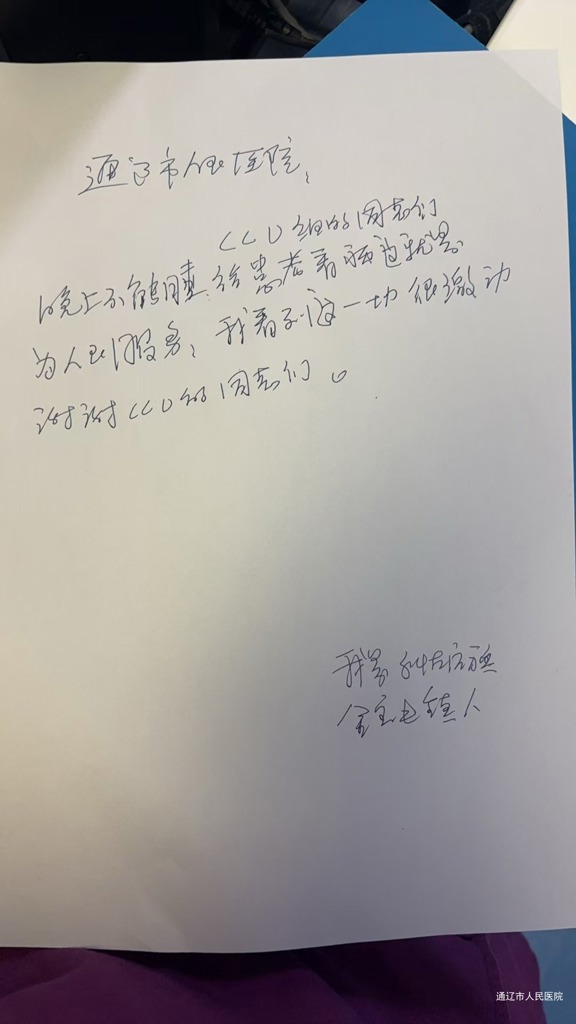 通辽市人民医院:
CCU组的同志们
晚上不能睡.给患者看病这就是
为人民服务,我看到这一切很激动
谢谢CCU的同志们。
我是
人
通辽市人民医院